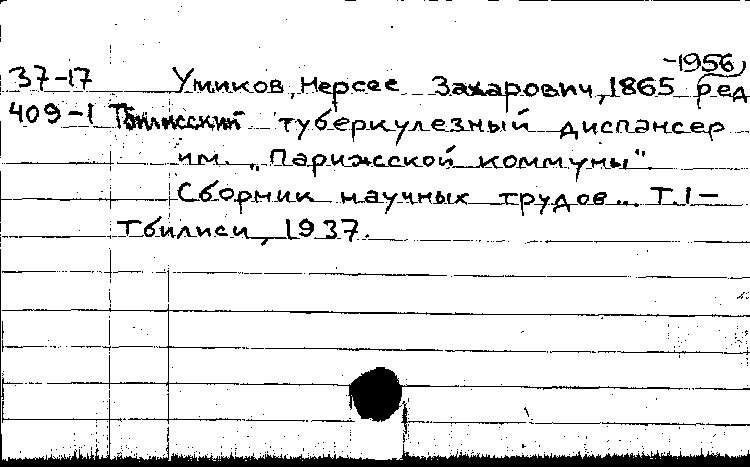 37-17 Умиков, Нерсес Захарович, 1865-1956, ред
409-1 Тбилисский туберкулезный диспансер
им. „Парижсской коммуны".
Сборник научных трудов... Т.1-
Тбилиси, 1937.